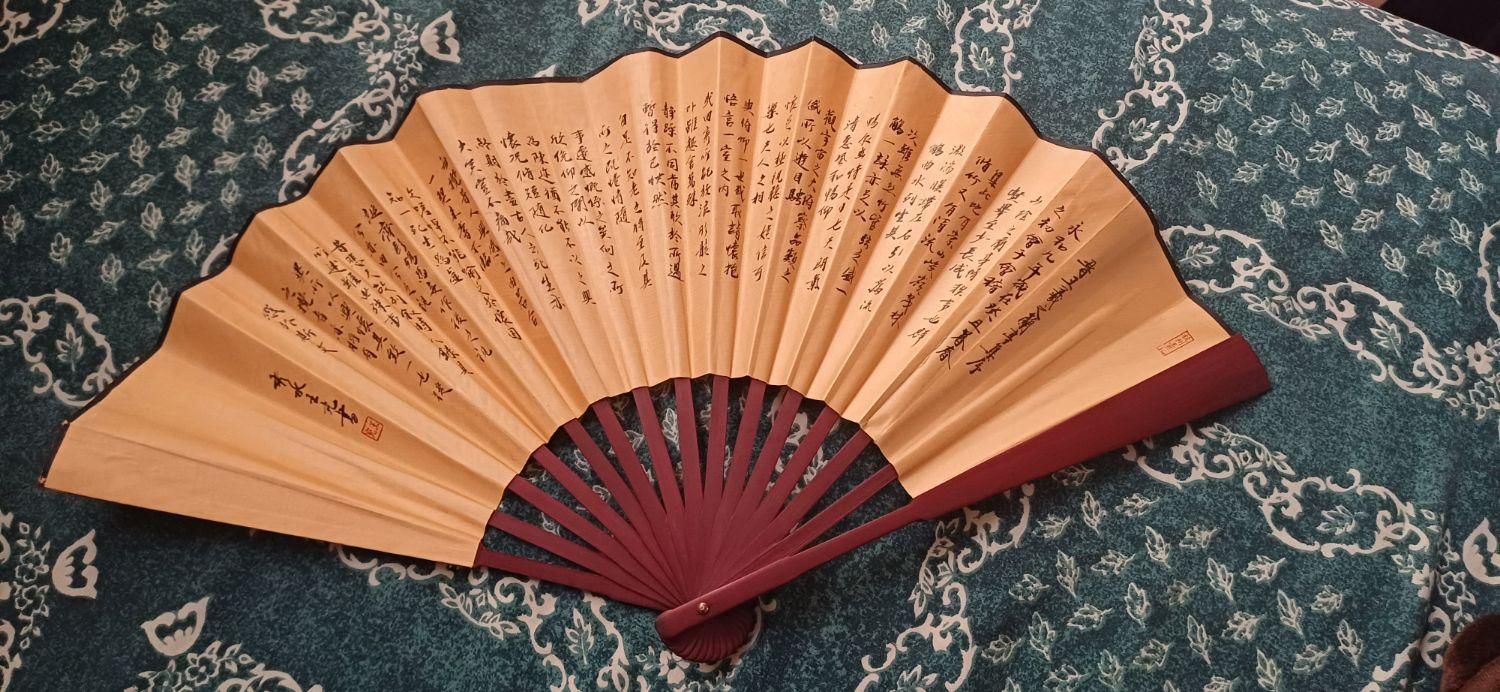 晉王羲之蘭亭集序
永和九年歲在癸丑暮春
之初會于會稽
山陰之蘭亭脩禊事也群
賢畢至少長咸集
此地有崇山峻嶺茂林
脩竹又有清流
激湍映帶左右引以為流
觴曲水列坐其
次雖無絲竹管弦之盛一
觴一詠亦足以
暢敘幽情是日也天朗氣
清惠風和暢仰
觀宇宙之大俯察品類之
盛所以遊目騁
懷足以極視聽之娛信可
樂也夫人之相
與俯仰一世或取諸懷抱
悟言一室之內
或因寄所託放浪形骸之
外雖趣舍萬殊
靜躁不同當其欣於所遇
暫得於己快然
自足不知老之將至及其
所之既倦情隨
事遷感慨係之矣向之所
欣俛仰之間以
為陳迹猶不能不以之興
懷況脩短隨化
終期於盡古人云死生亦
大矣豈不痛哉
每攬昔人興感之由若合
一契未嘗不臨
文嗟悼不能喻之於懷固
知一死生為虛
誕齊彭殤為妄作後之視
今亦由今之視昔
悲夫故列敘時人錄其
所述雖世殊事
異所以興懷其致一也後
之攬者亦將有
感於斯文